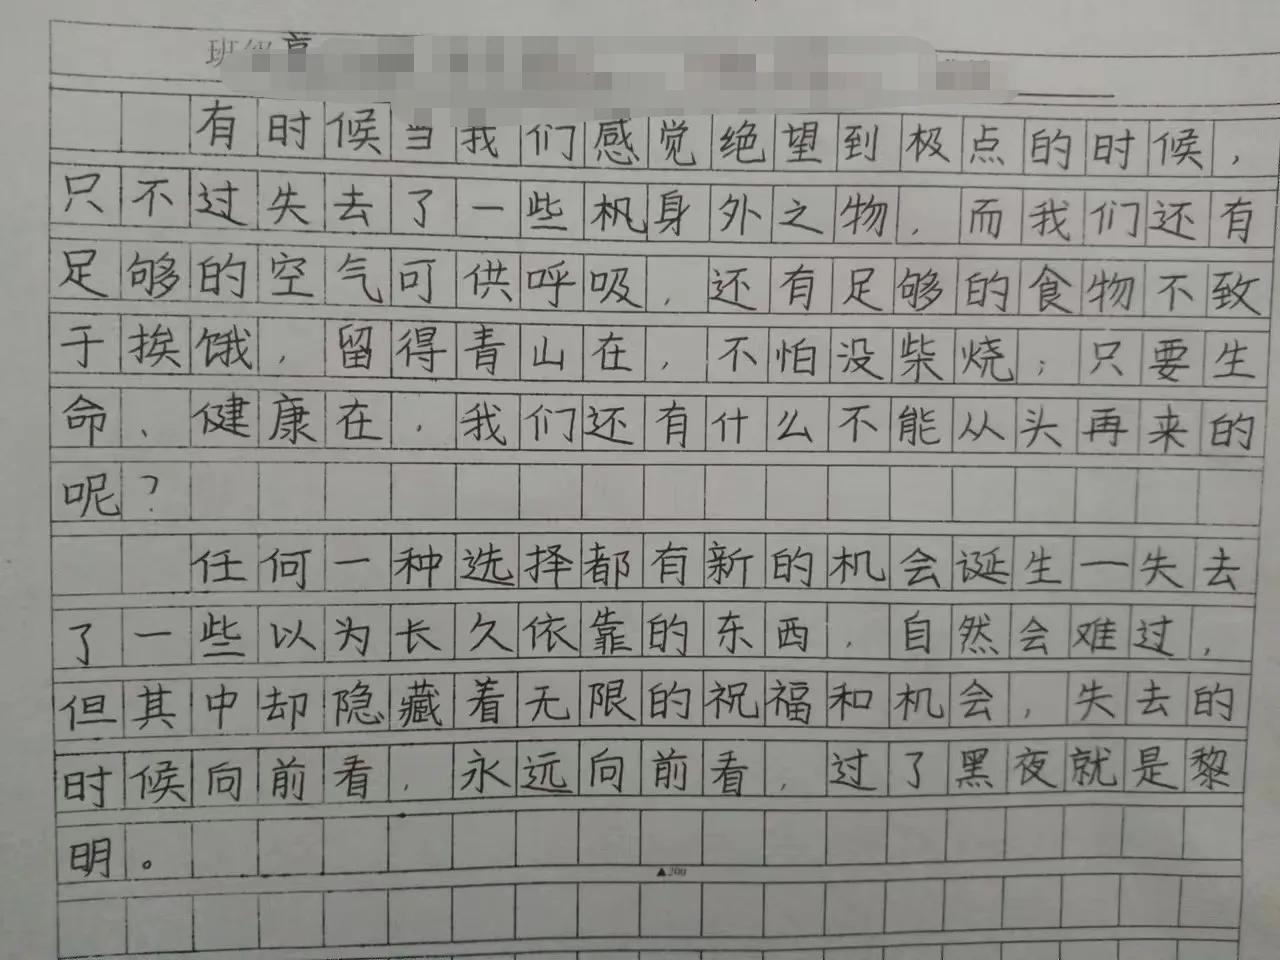 有时候当我们感觉绝望到极点的时候，
只不过失去了一些机身外之物，而我们还有
足够的空气可供呼吸，还有足够的食物不致
于挨饿，留得青山在，不怕没柴烧；只要生
命、健康在，我们还有什么不能从头再来的
呢？
任何一种选择都有新的机会诞生一失去
了一些以为长久依靠的东西，自然会难过，
但其中却隐藏着无限的祝福和机会，失去的
时候向前看，永远向前看，过了黑夜就是黎
明。
▲200